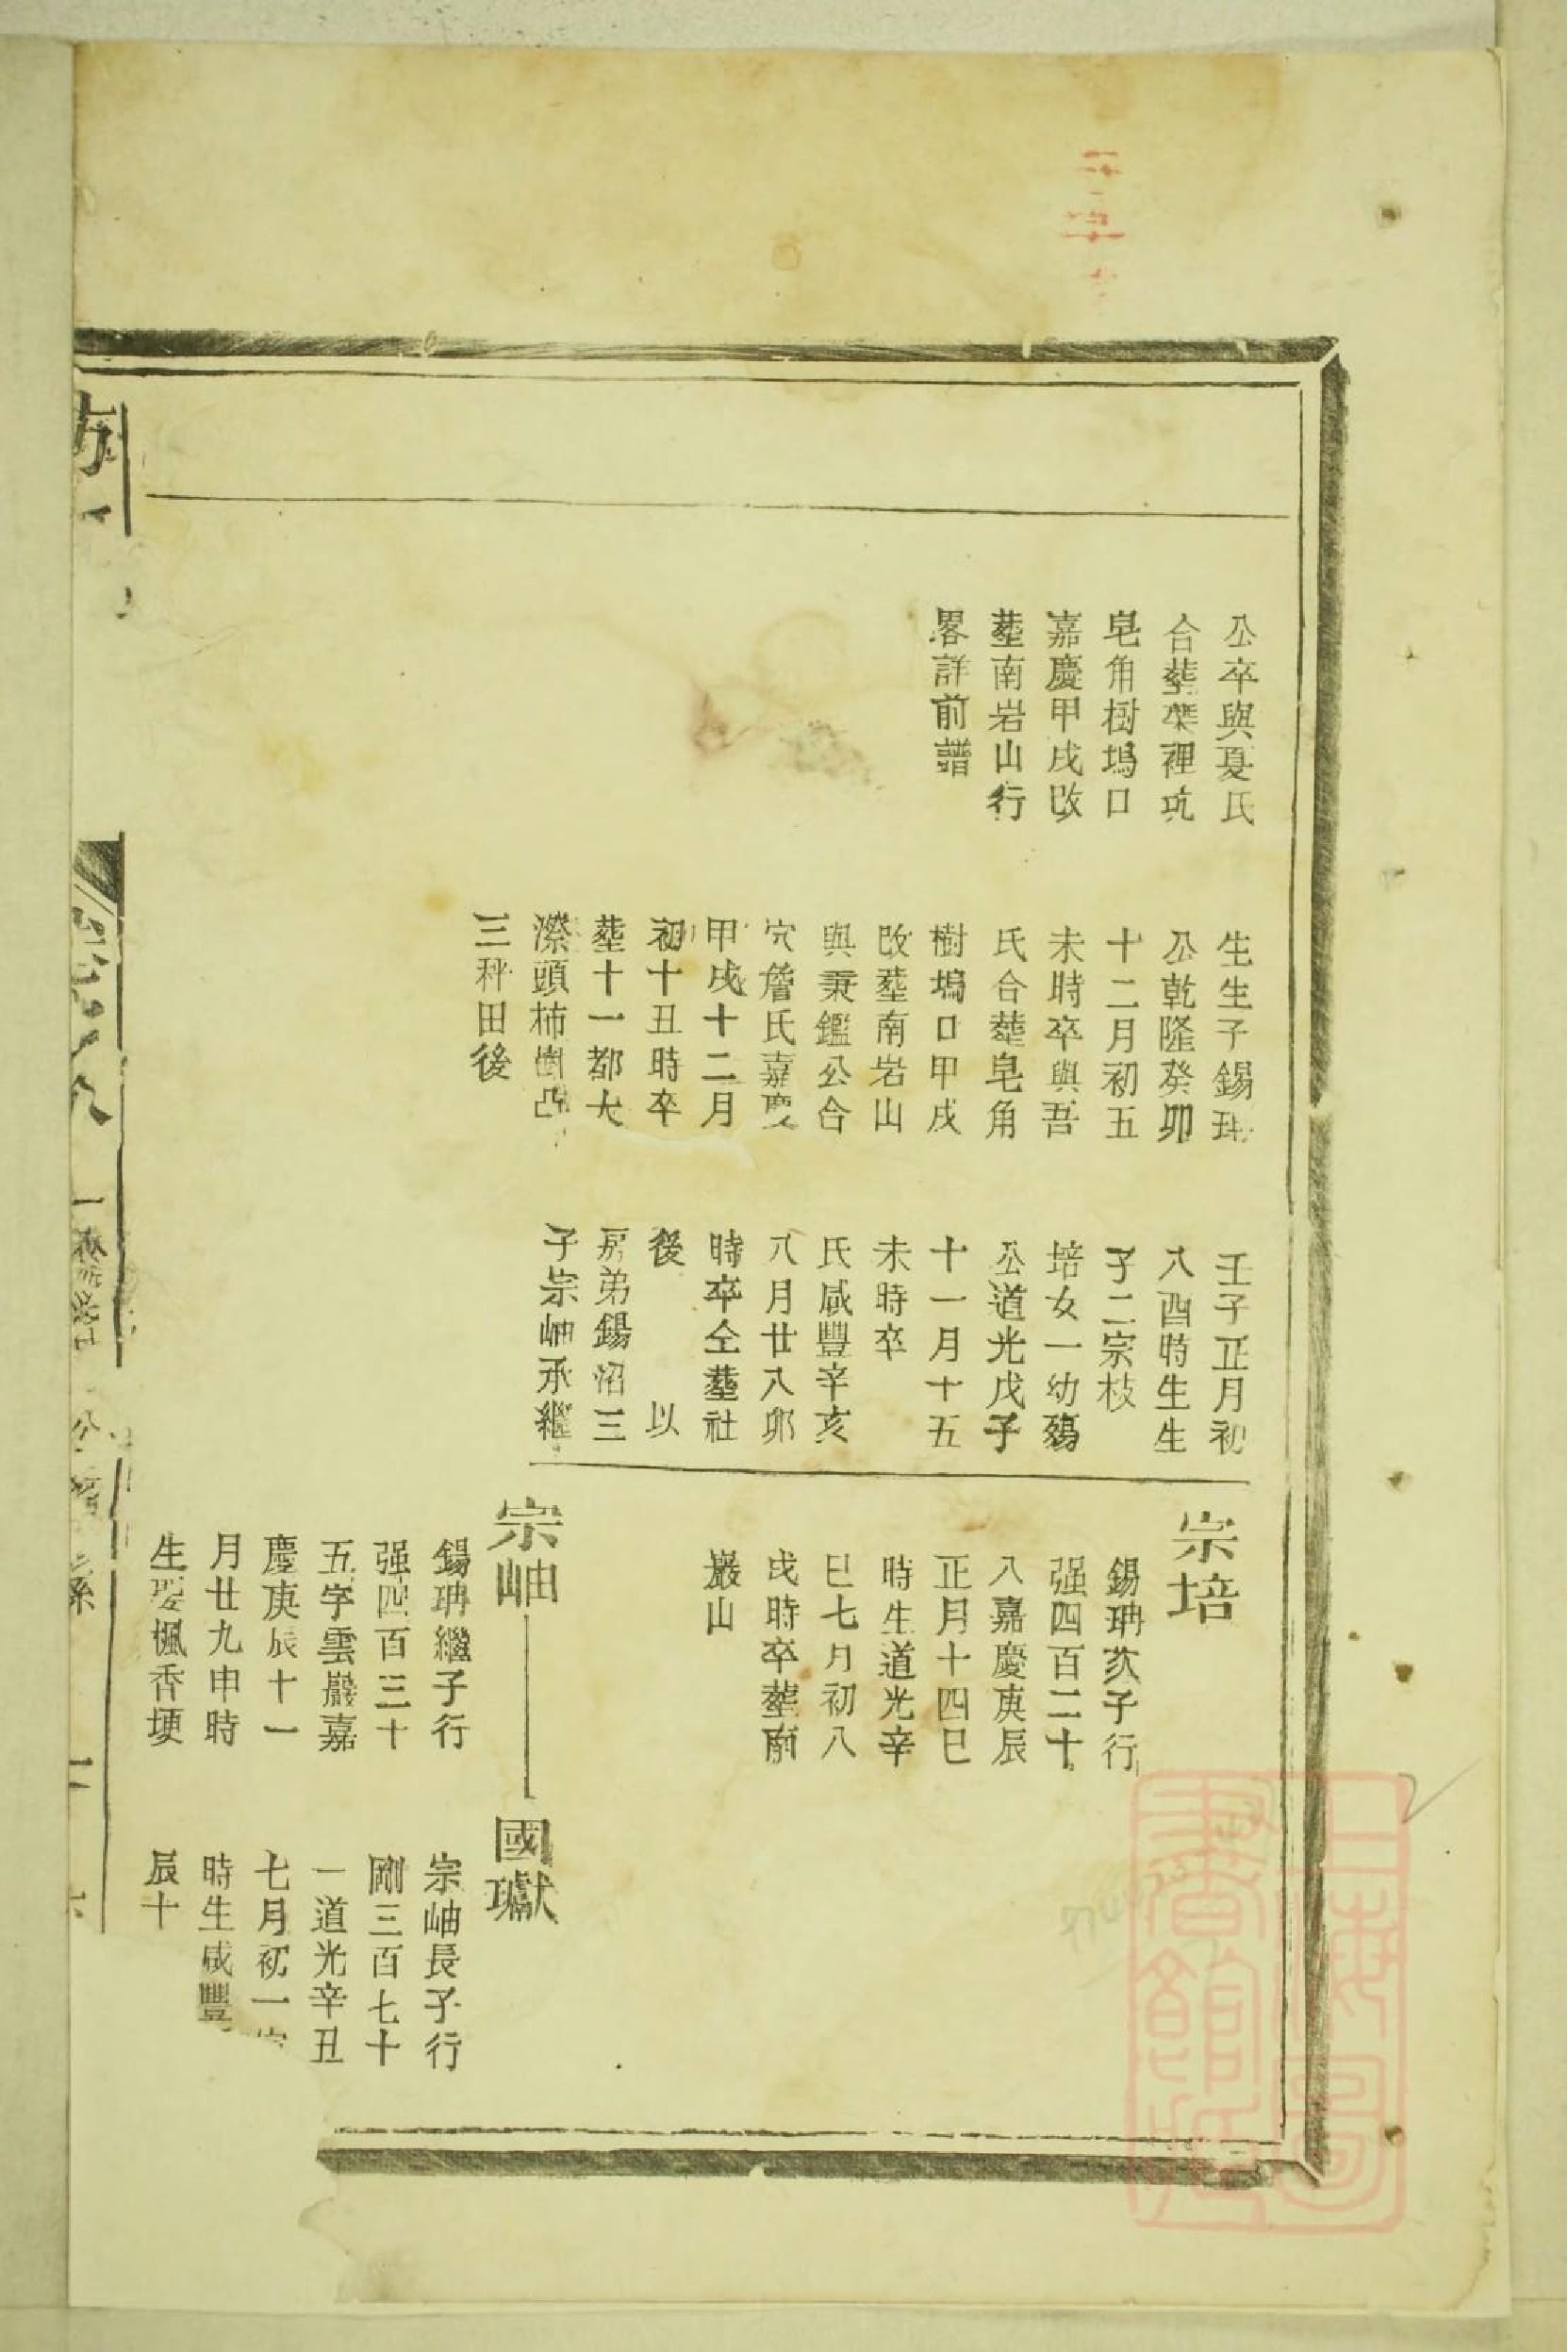 公卒與夏氏
合塟葉裡坑
皂角樹塢口
嘉慶甲戌改
塟南岩山行
畧詳前譜
生生子錫珃
公乾隆癸卯
十二月初五
未時卒與吾
氏合塟皂角
樹塢口甲戌
改塟南岩山
與秉鑑公合
穴詹氏嘉慶
甲戌十二月
初十丑時卒
塟十一都大
漈頭柿樹凸
三秤田後
壬子正月初
八酉時生生
子二宗枝
培女一幼殤
公道光戊子
十一月十五
未時卒
氏咸豐辛亥
八月廿八卯
時卒仝塟社
後 以
房弟錫沼三
子宗岫承繼
宗培
錫珃次子行
强四百二十
八嘉慶庚辰
正月十四巳
時生道光辛
巳七月初八
戌時卒塟南
巖山
宗岫
錫珃繼子行
强四百三十
五字雲巖嘉
慶庚辰十一
月廿九申時
生娶楓香埂
國瓛
宗岫長子行
剛三百七十
一道光辛丑
七月初一
時生咸豐
辰十
上海圖書館藏